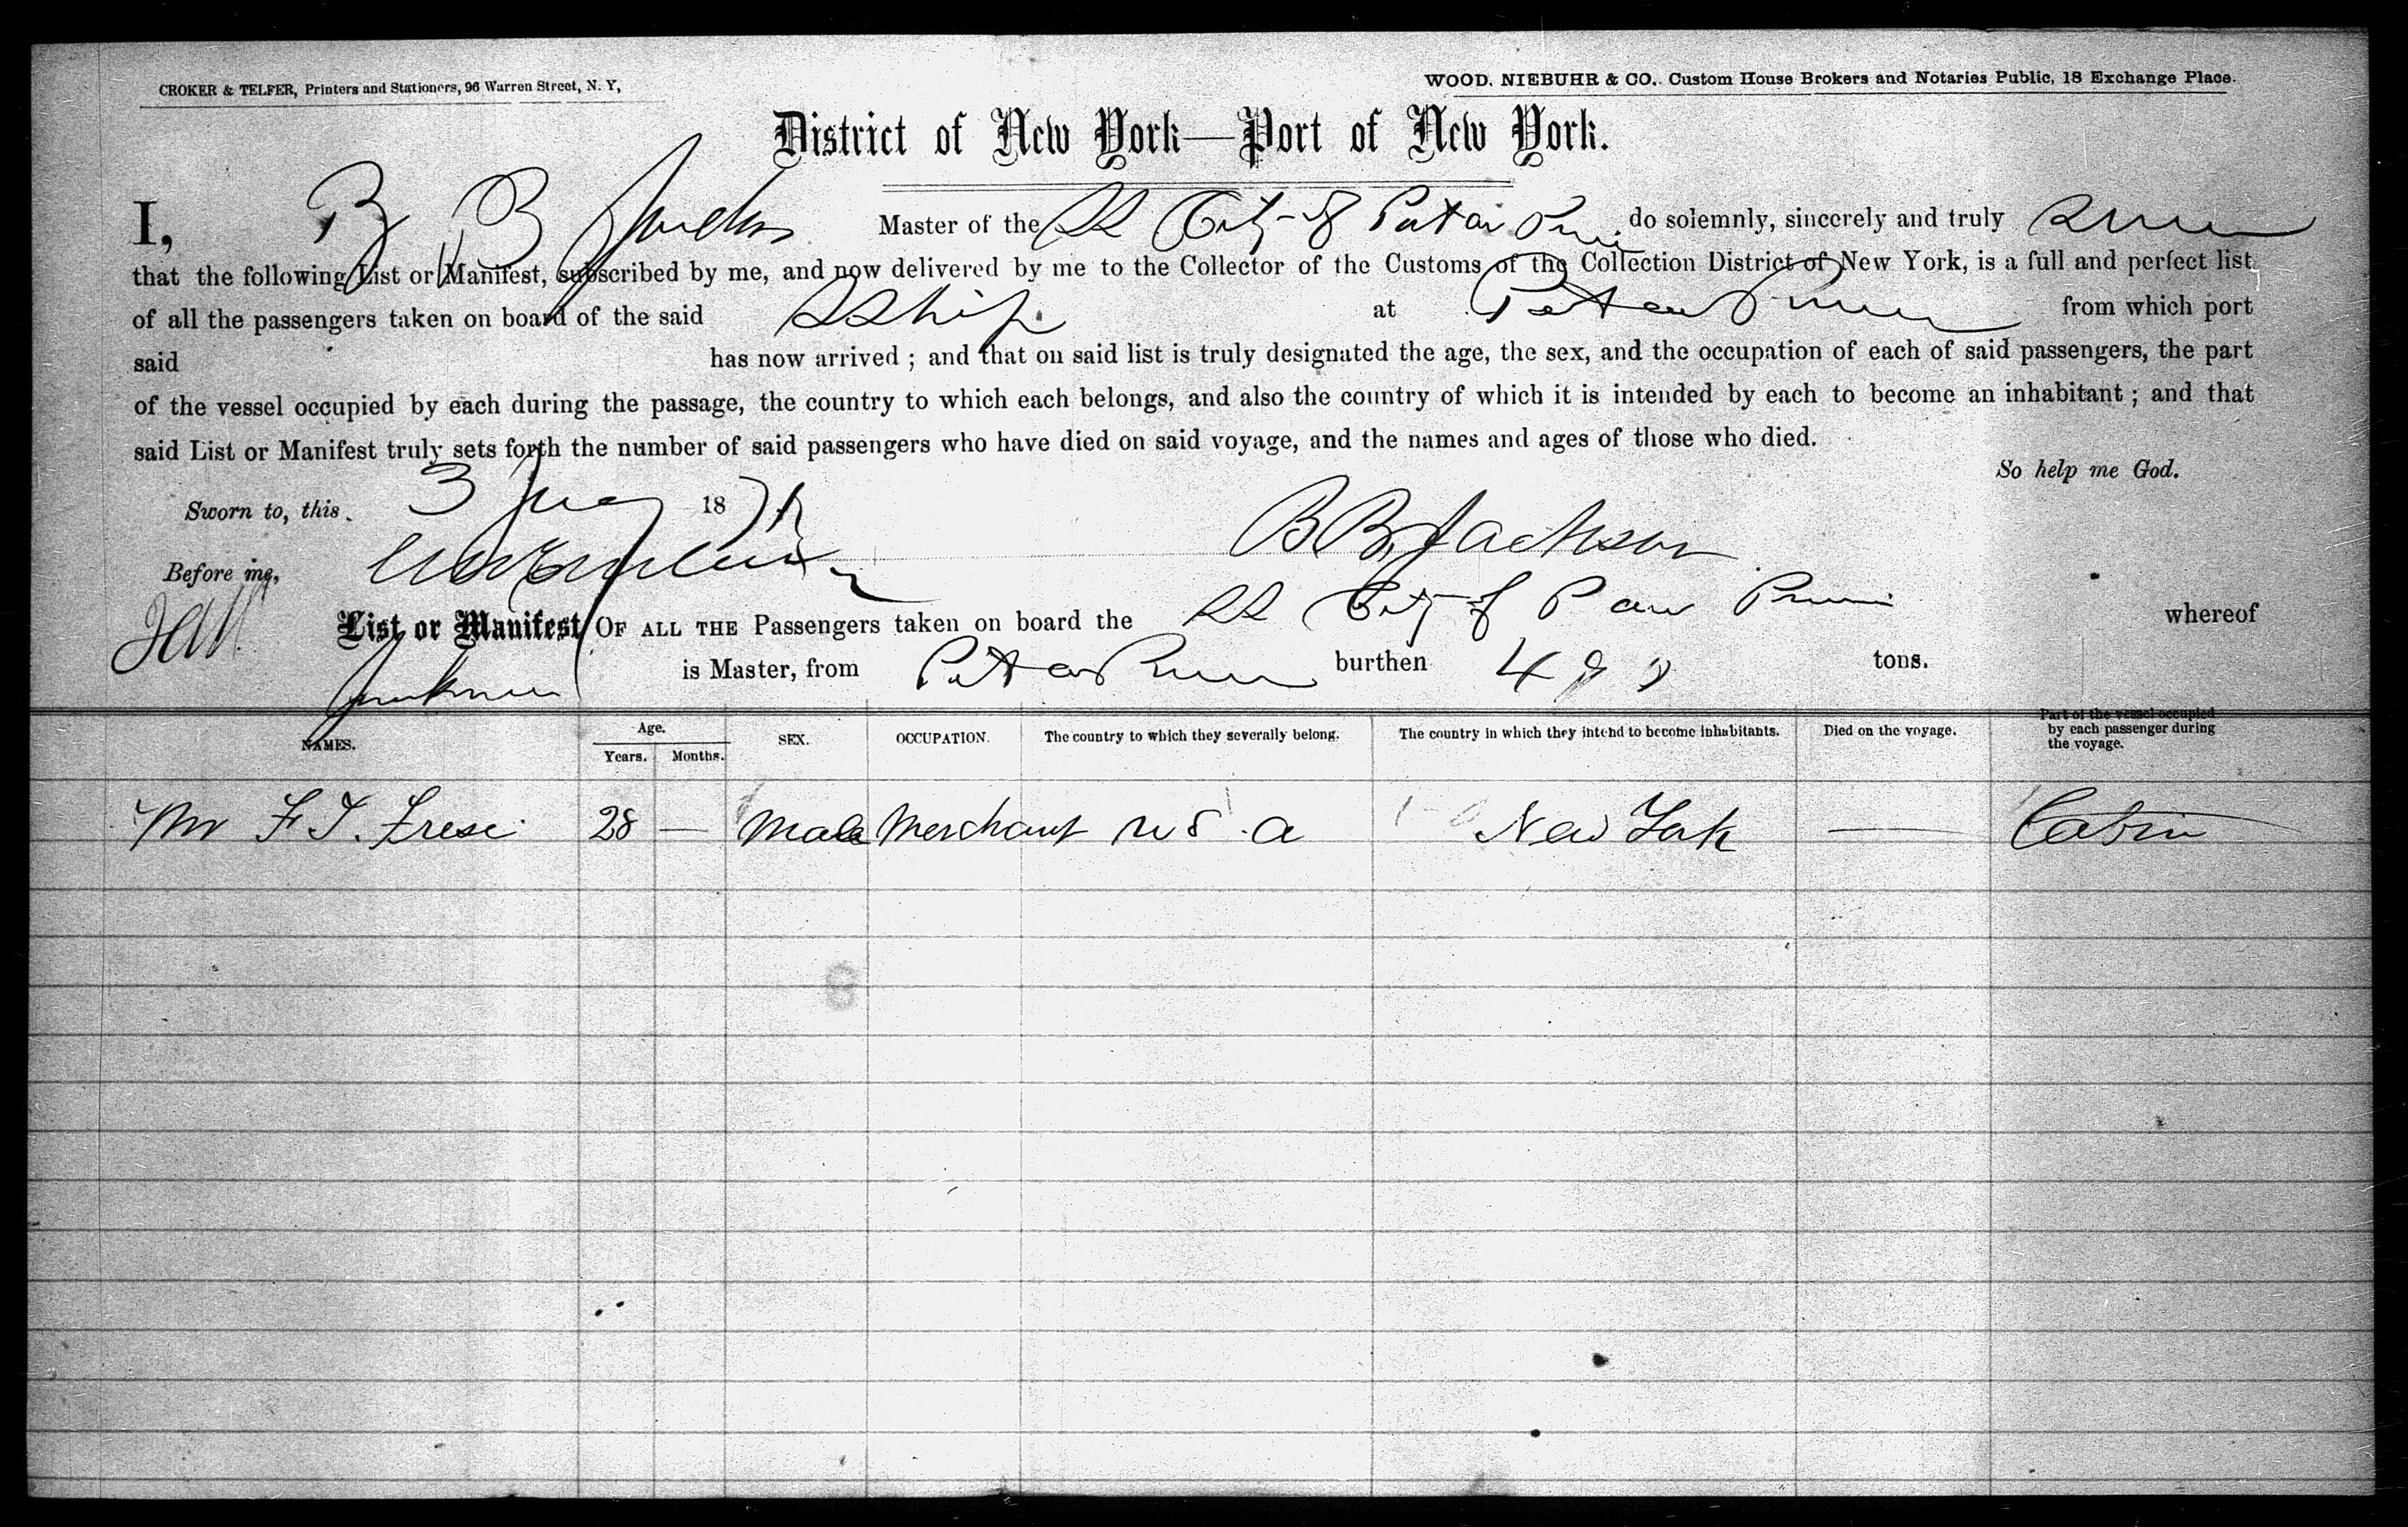 CROKER & TELFER, Printers and Stationers, 96 Warren Street, N. Y,
WOOD, NIEBUHR & CO. Custom House Brokers and Notaries Public, 18 Exchange Place.
District of New York—Port of New York.
I, B B Jackson Master of the SS City of do solemnly, sincerely and truly swear
that the following List or Manifest, subscribed by me, and now delivered by me to the Collector of the Customs of the Collection District of New York, is a full and perfect list
of all the passengers taken on board of the said SShip at from which port
said has now arrived ; and that on said list is truly designated the age, the sex, and the occupation of each of said passengers, the part
of the vessel occupied by each during the passage, the country to which each belongs, and also the country of which it is intended by each to become an inhabitant ; and that
said List or Manifest truly sets forth the number of said passengers who have died on said voyage, and the names and ages of those who died.
So help me God.
Sworn to, this 3 18
B B Jackson
Before me,
List or Manifest OF ALL THE Passengers taken on board the SS City of whereof
is Master, from burthen tons.
NAMES. Age. Years. Months. SEX. OCCUPATION. The country to which they severally belong. The country in which they intend to become inhabitants. Died on the voyage. Part of the vessel occupied by each passenger during the voyage.
Mr F. J. Frese 28 — Male Merchant U S a New York — Cabin